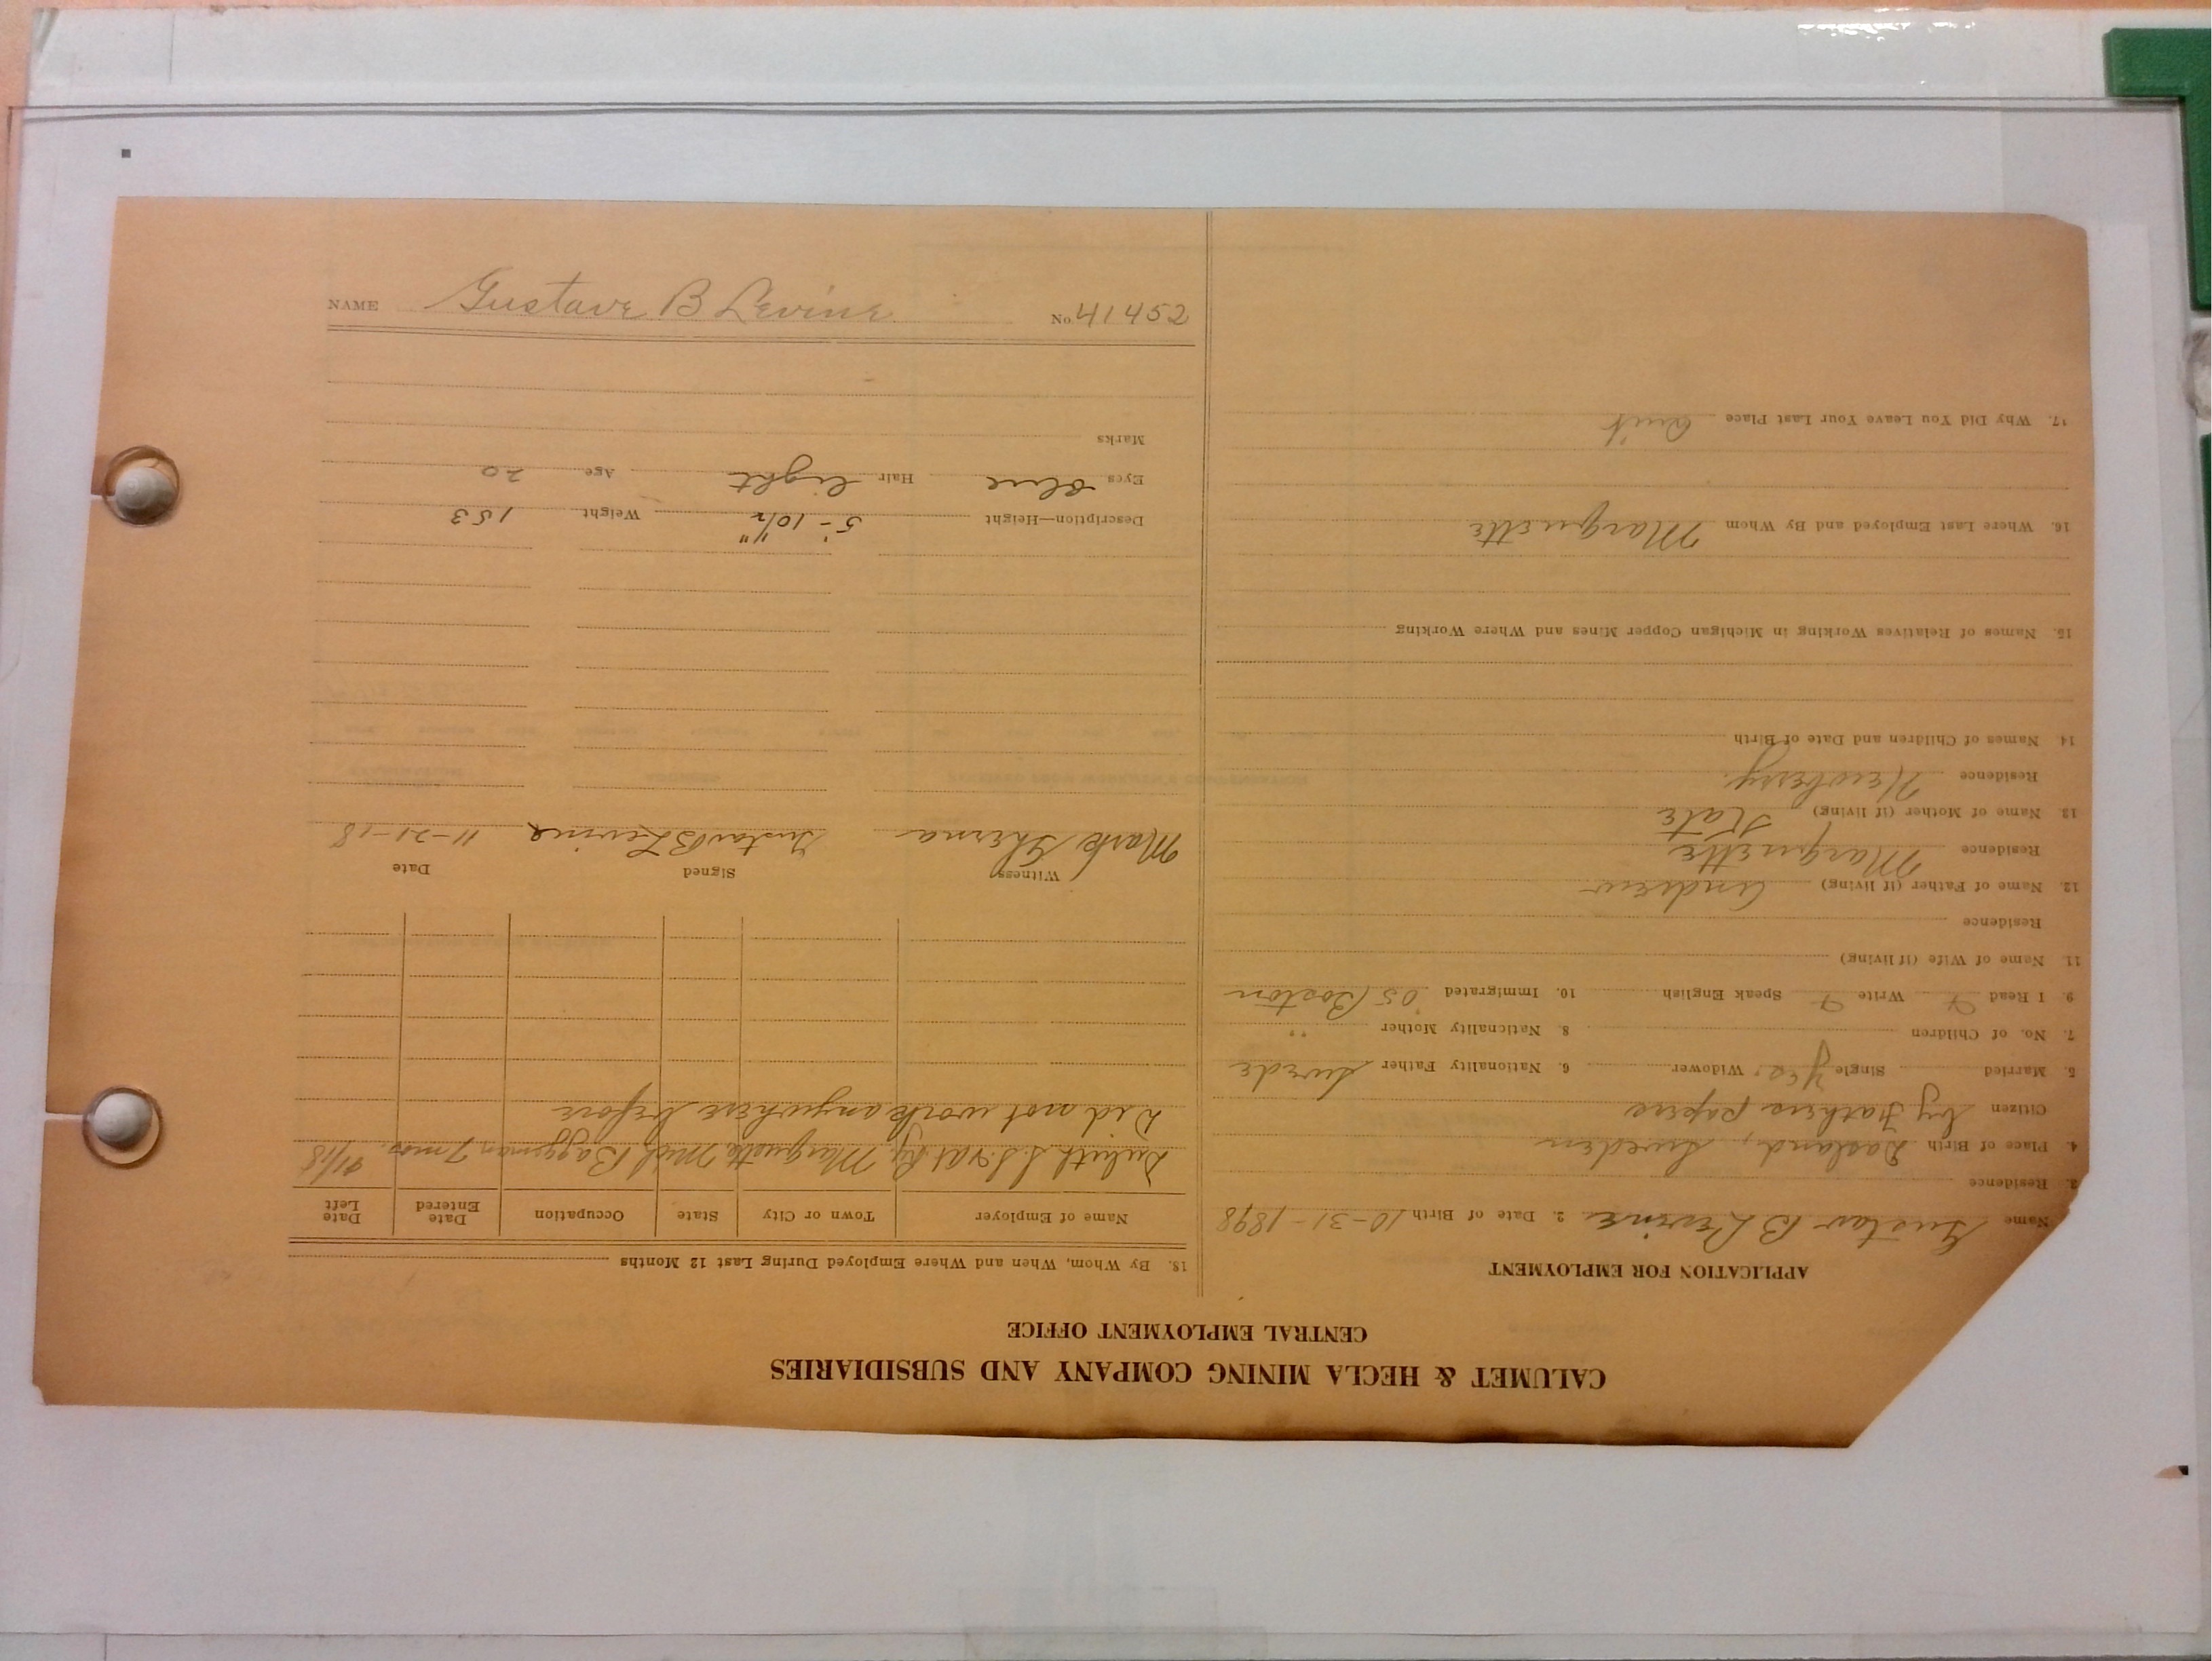 CALUMET & HECLA MINING COMPANY AND SUBSIDIARIES
CENTRAL EMPLOYMENT OFFICE
APPLICATION FOR EMPLOYMENT
Name Gustav B Levine 2. Date of Birth 10-31-1898
3. Residence
4. Place of Birth Dasland, Sweden
Citizen by Fathers papers
5. Married Single yes. Widower 6. Nationality Father Swede
7. No. of Children 8. Nationality Mother "
9 I Read Write Speak English 10. Immigrated '05 Boston
11. Name of Wife (if living)
Residence
12. Name of Father (if living) Andrew
Residence Marquette
13 Name of Mother (if living) Kate
Residence Newberry.
14 Names of Children and Date of Birth
15. Names of Relatives Working in Michigan Copper Mines and Where Working
16. Where Last Employed and By Whom Marquette
17. Why Did You Leave Your Last Place Quit
18. By Whom, When and Where Employed During Last 12 Months
Name of Employer Town or City State Occupation Date Entered Date Left
Duluth S.S. & At Ry Marquette Mich Baggman 7 mos. 9/18
Did not work anywhere before
Witness Signed Date
Mark Gustav B Levine 11-21-18
Description—Height 5'-10 1/2" Weight 153
Eyes blue Hair light Age 20
Marks
NAME Gustave B Levine No. 41452